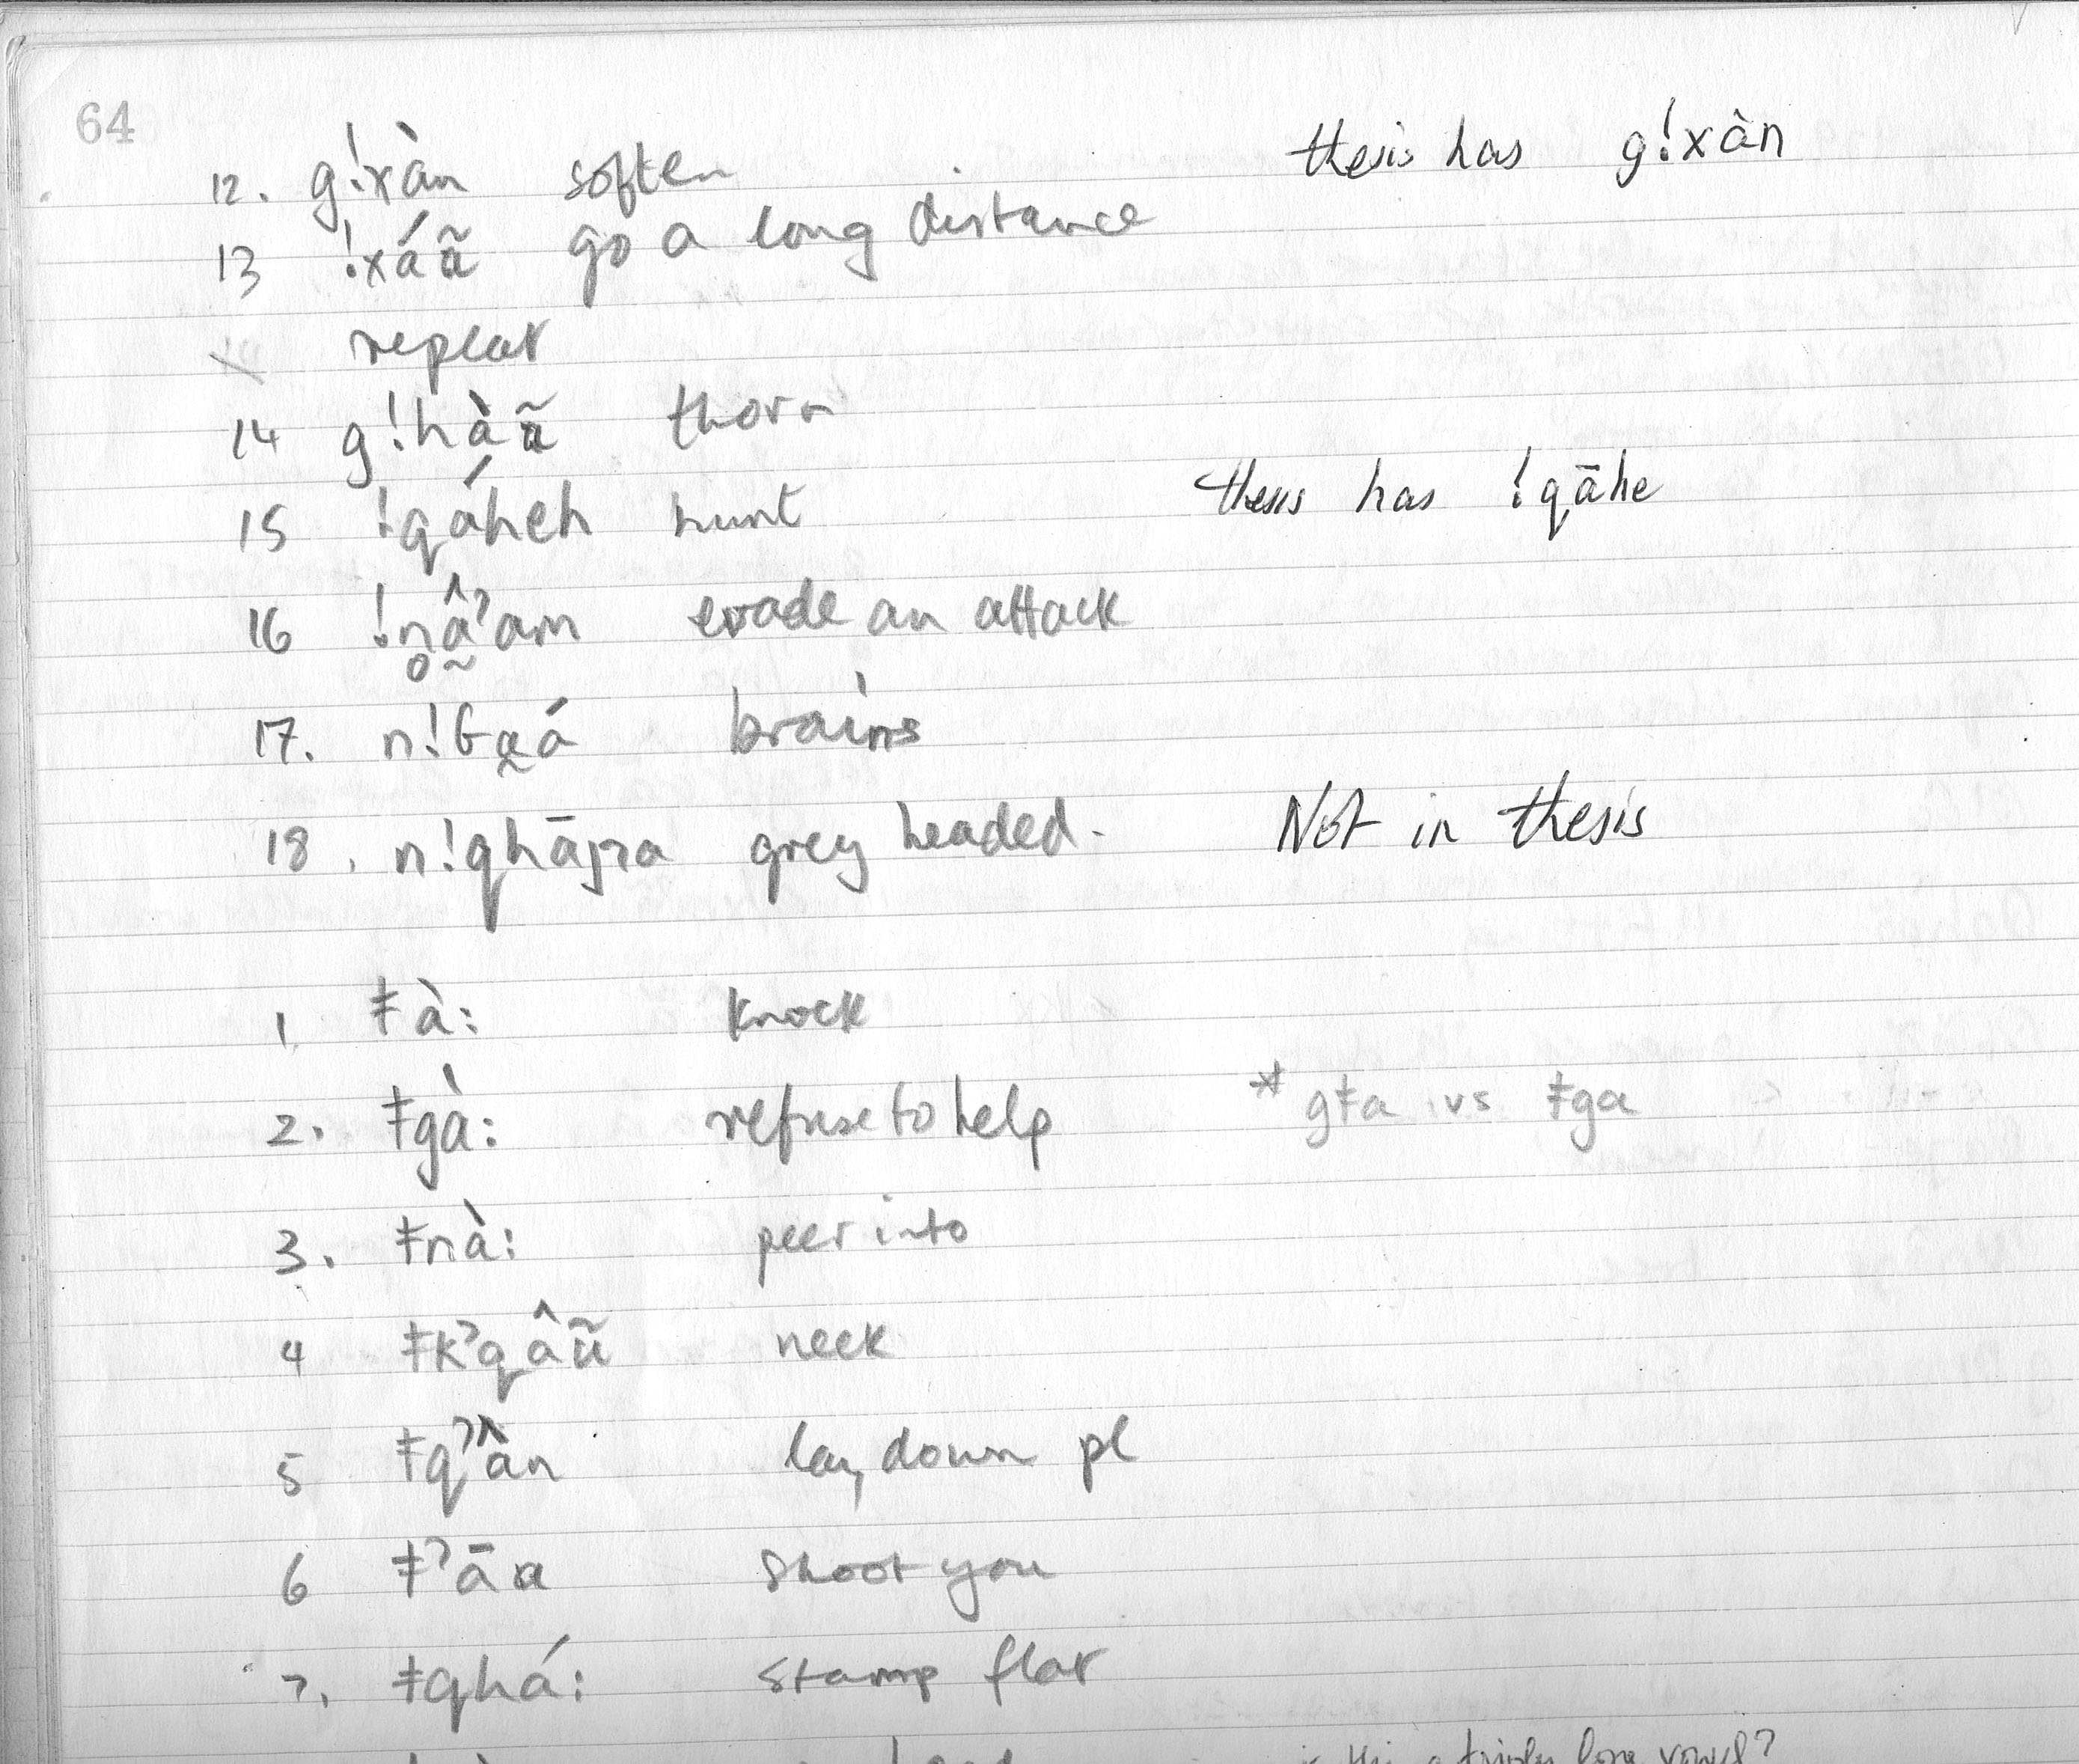 64
12. g!xàn soften thesis has g!xàn
13 !xáã go a long distance
repeat
14 g!hàã thorn
15 !qáheh hunt thesis has !qāhe
16 !n̥â̰ʔam evade an attack
17. n!ɢa̰á brains
18. n!qhāɲa grey headed. Not in thesis
1 ǂà: knock
2. ǂgà: refuse to help * gǂa vs ǂga
3. ǂnà: peer into
4 ǂkʔqâũ neck
5 ǂqʔân lay down pl
6 ǂʔāa shoot you
7. ǂqhá: stamp flat
vowel?